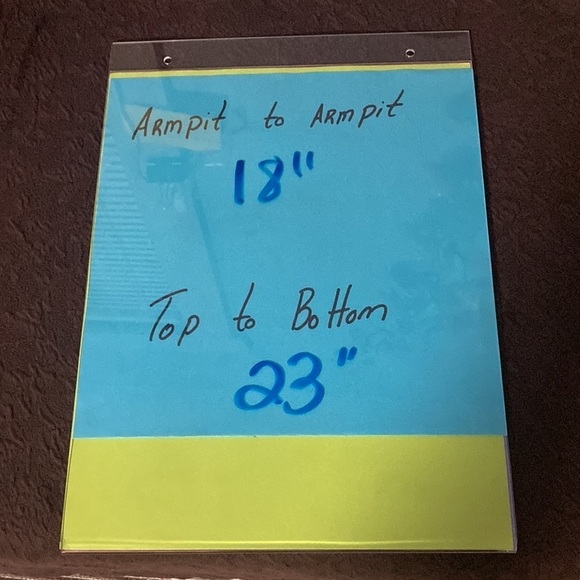 Armpit to Armpit
18"
Top to Bottom
23"